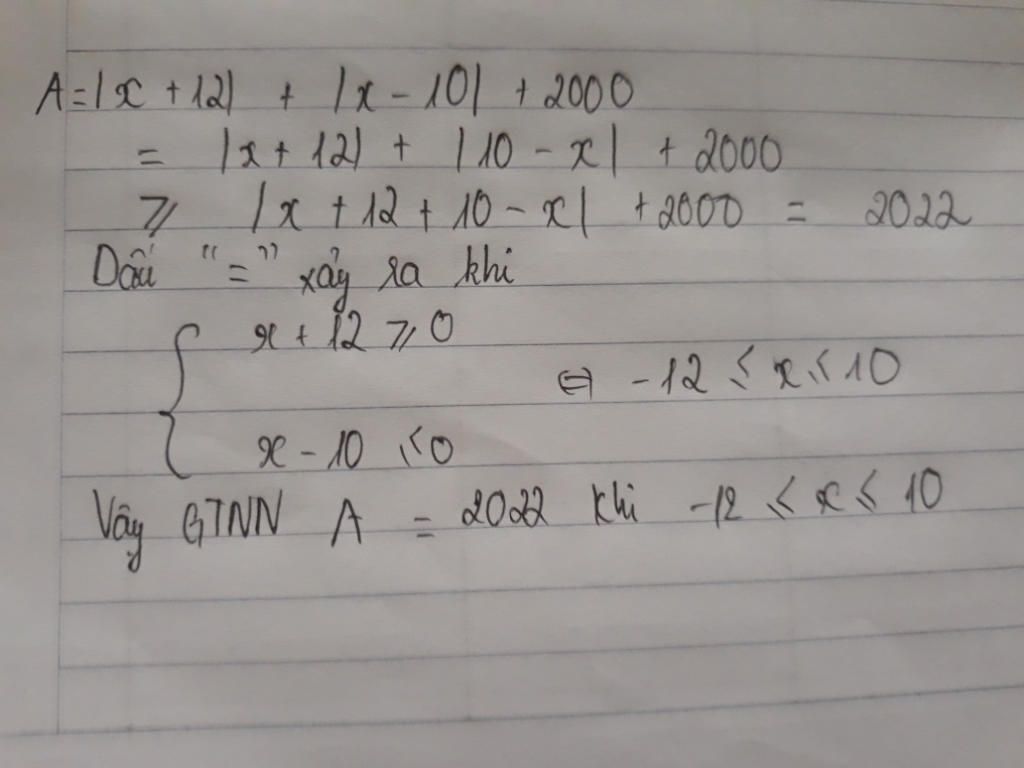 A = |x + 12| + |x - 10| + 2000
= |x + 12| + |10 - x| + 2000
⩾ |x + 12 + 10 - x| + 2000 = 2022
Dấu "=" xảy ra khi
{ x + 12 ⩾ 0
⇔ -12 ⩽ x ⩽ 10
x - 10 ⩽ 0
Vậy GTNN A = 2022 khi -12 ⩽ x ⩽ 10